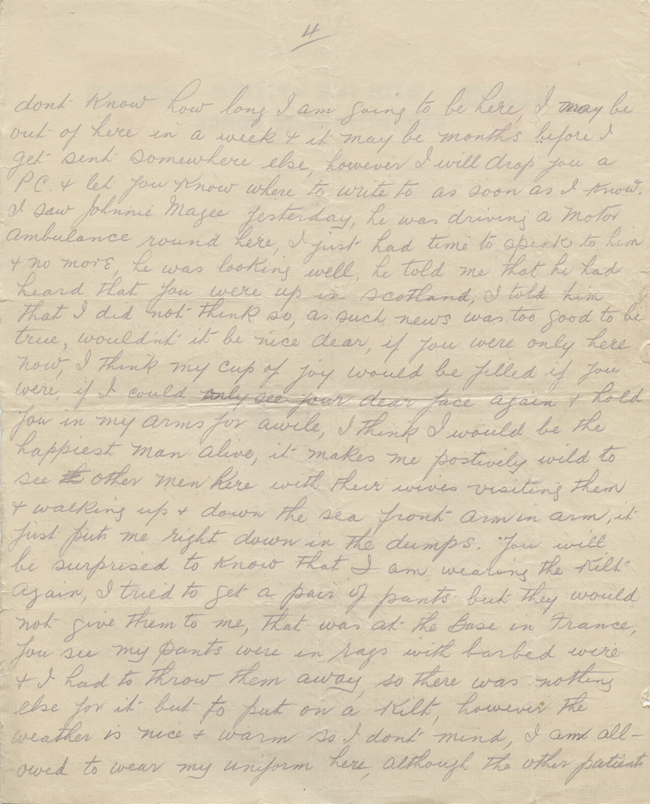 4
dont know how long I am going to be here, I may be
out of here in a week & it may be months before I
get sent somewhere else, however I will drop you a
P.C. & let you know where to write to as soon as I know.
I saw Johnnie Magee yesterday, he was driving a Motor
Ambulance round here, I just had time to speak to him
& no more, he was looking well, he told me that he had
heard that you were up in Scotland, I told him
that I did not think so, as such news was too good to be
true, wouldnt it be nice dear, if you were only here
now, I think my cup of joy would be filled if you
were, if I could only see your dear face again & hold
you in my arms for awile, I think I would be the
happiest man alive, it makes me postively wild to
see other men here with their wives visiting them
& walking up & down the sea front arm in arm, it
just puts me right down in the dumps. You will
be surprised to know that I am wearing the Kilt
again, I tried to get a pair of pants but they would
not give them to me, that was at the Base in France,
you see my pants were in rags with barbed wire
& I had to throw them away, so there was nothing
else for it but to put on a Kilt, however the
weather is nice & warm so I dont mind, I am all-
owed to wear my uniform here, although the other patients